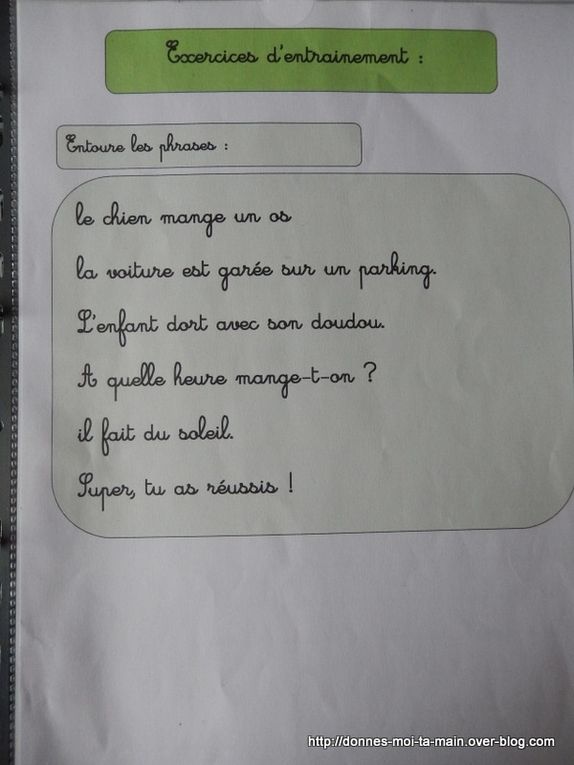 Exercices d'entrainement :
Entoure les phrases :
le chien mange un os
la voiture est garée sur un parking.
L'enfant dort avec son doudou.
A quelle heure mange-t-on ?
il fait du soleil.
Super, tu as réussis !
http://donnes-moi-ta-main.over-blog.com